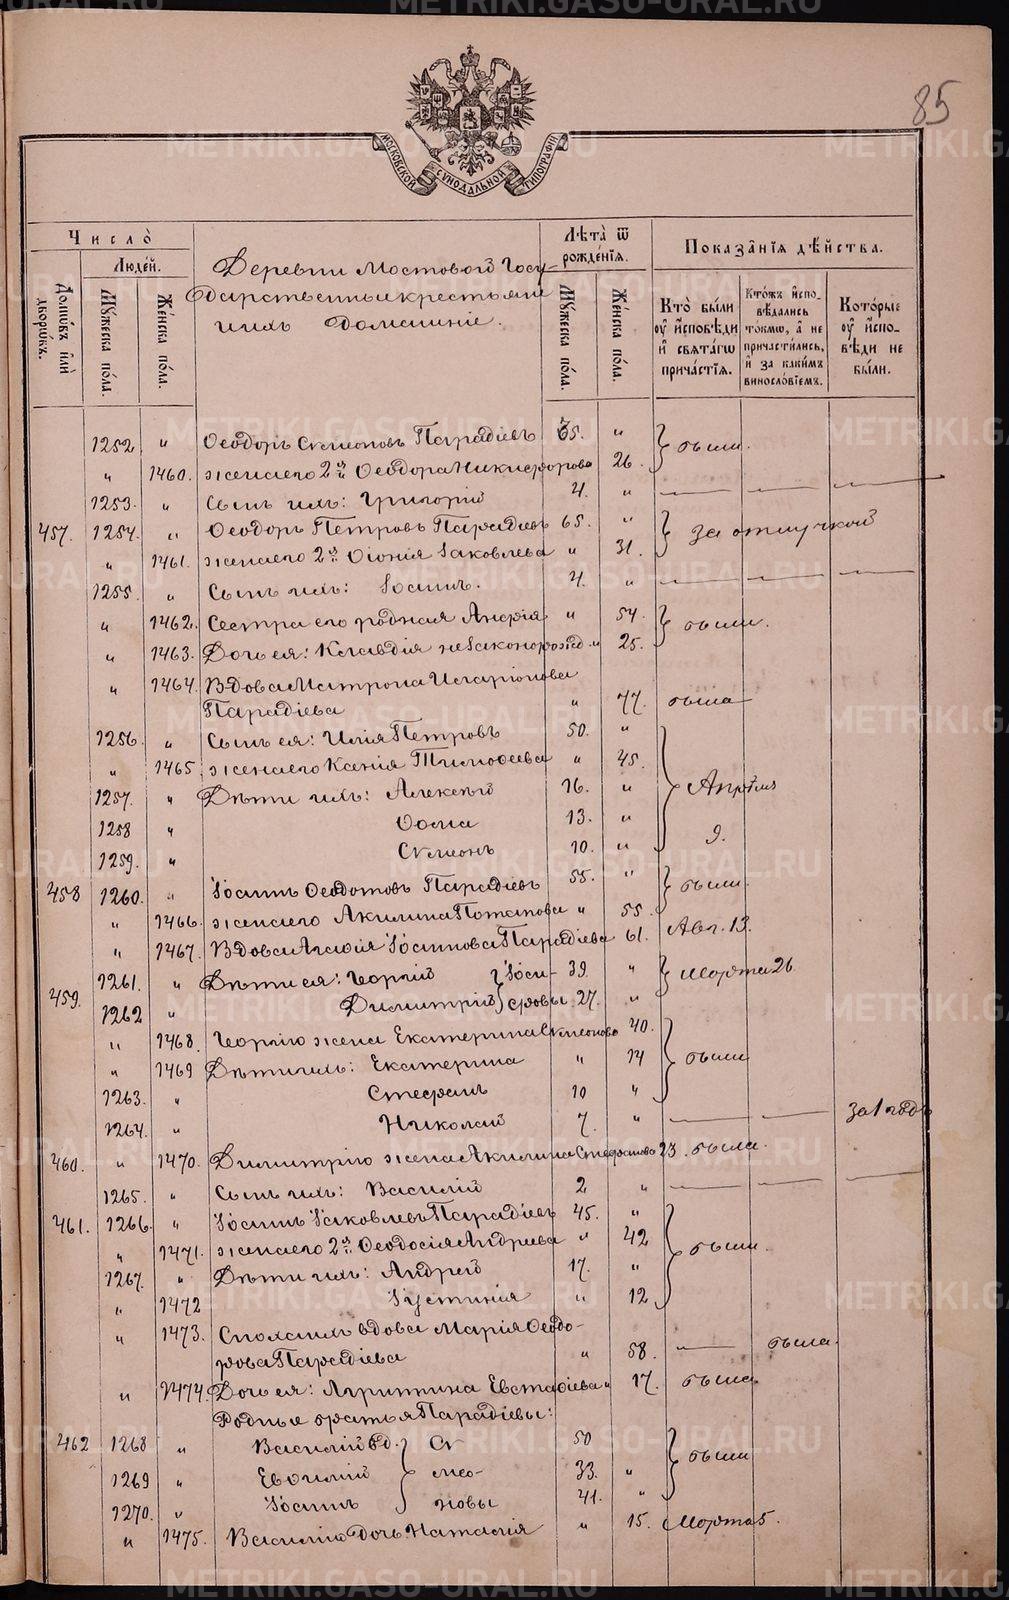 METRIKI.GASO-URAL.RU
85
МОСКОВСКОЙ СѴНОДАЛЬНОЙ ТИПОГРАФІИ
Число̀
Люде́й.
Домѡ́въ и҆лѝ дворѡ́въ.
Мꙋ́жеска по́ла.
Же́нска по́ла.
Деревни Мостовой Госу-
дарственные крестьяне
и ихъ домашніе.
Лѣ́та ѿ рожде́нїѧ.
Мꙋ́жеска по́ла.
Же́нска по́ла.
Показа̑нїѧ дѣ́йства.
Кто̀ бы́ли ᲂу҆ и҆́сповѣди и҆ свѧта́гѡ прича́стїѧ.
Кто́жъ и҆спо- вѣ́дались то́кмѡ, а҆ не причасти́лись, и҆ за каки́мъ винословїемъ.
Кото́рые ᲂу҆ и҆́спо- вѣди не бы́ли.
1252 " Ѳеодоръ Симеоновъ Парадіевъ 65. " были.
" 1460. жена его 2я Ѳеодора Никифорова 26.
1253. " Сынъ ихъ: Григорій 4. "
457. 1254. " Ѳеодоръ Петровъ Парадіевъ 65. " за отлучкой
" 1461. жена его 2я Іаковлева " 31.
1255. " Сынъ ихъ: Іоаннъ. 4. "
" 1462. Сестра его родная Анфія " 54. были.
" 1463. Дочь ея: Клавдія незаконорожд. " 25.
" 1464. Вдова Матрона Иларіонова
Парадіева " 77. была
1256. " Сынъ ея: Илія Петровъ 50. "
" 1465. жена его Ксенія Тимоѳеева " 45.
1257. " Дѣти ихъ: Алексѣй 16. " Апрѣля
1258 " Ѳома 13. " 9.
1259. " Симеонъ 10. "
458 1260. " Іоаннъ Ѳеодотовъ Парадіевъ 55. " были.
" 1466. жена его Акилина Потапова " 55.
" 1467. Вдова Агаѳія Іоаннова Парадіева 61. Авг. 13.
459. 1261. " Дѣти ея: Георгій Іоси- 39. " Марта 26
1262 " Димитрій фовы 27. "
" 1468. Георгію жена Екатерина Симеонова 40. были
" 1469 Дѣти ихъ: Екатерина " 14
1263. " Стефанъ 10 "
1264. " Николай 7. " за 1 годъ
460. " 1470. Димитрію жена Акилина Стефанова 23. была.
1265. " Сынъ ихъ: Василій 2 "
461. 1266. " Іоаннъ Іаковлевъ Парадіевъ 45. " были.
" 1471. жена его 2я Ѳеодосія Андреева " 42
1267. " Дѣти ихъ: Андрей 17. "
" 1472 Іустинія " 12
" 1473. Сполсаихъ вдова Марія Ѳеодо-
рова Парадіева " 58. была.
" 1474. Дочь ея: Агриппина Евстафіева " 17. была.
Родные братья Парадіевы:
462 1268 " Василій вд. Си 50 были
1269 " Евѳимій мео- 33. "
1270. " Іоаннъ новы 41. "
" 1475. Василія дочь Наталія " 15. Марта 5.